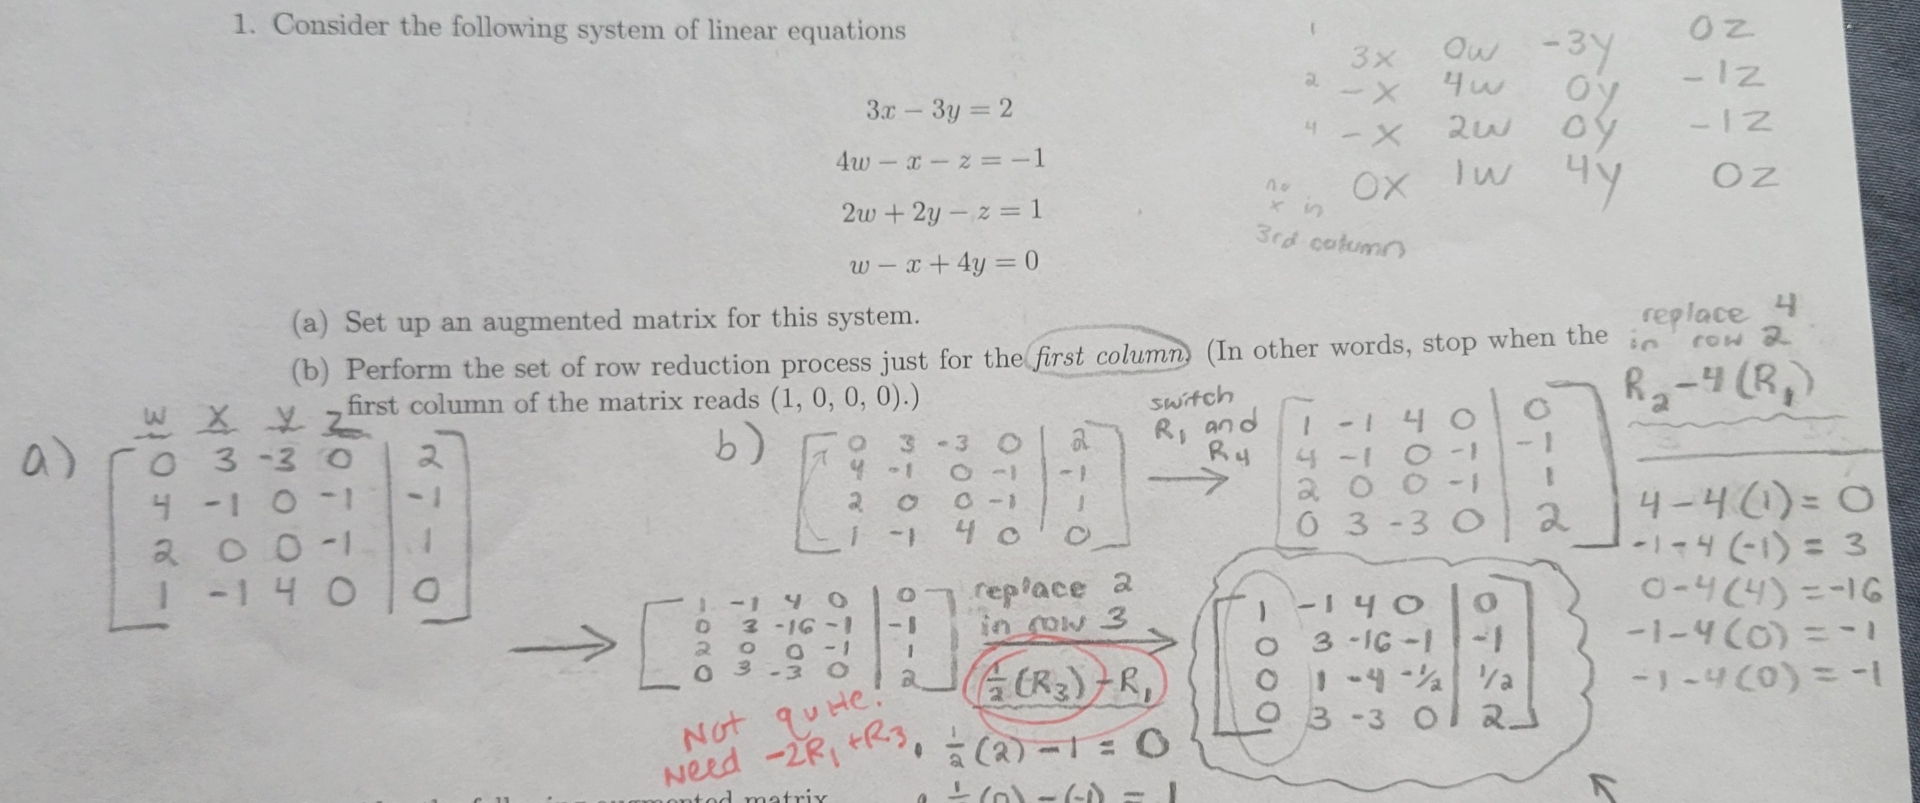 1. Consider the following system of linear equations
3x − 3y = 2
4w − x − z = −1
2w + 2y − z = 1
w − x + 4y = 0
1 3x 0w -3y 0z
2 -x 4w 0y -1z
4 -x 2w 0y -1z
0x 1w 4y 0z
no
x in
3rd column
(a) Set up an augmented matrix for this system.
(b) Perform the set of row reduction process just for the first column. (In other words, stop when the
first column of the matrix reads (1, 0, 0, 0).)
replace 4
in row 2
R2 - 4(R1)
a)
w x y z
0 3 -3 0 | 2
4 -1 0 -1 | -1
2 0 0 -1 | 1
1 -1 4 0 | 0
b)
0 3 -3 0 | 2
4 -1 0 -1 | -1
2 0 0 -1 | 1
1 -1 4 0 | 0
switch
R1 and
R4
→
1 -1 4 0 | 0
4 -1 0 -1 | -1
2 0 0 -1 | 1
0 3 -3 0 | 2
4 - 4(1) = 0
-1 - 4(-1) = 3
0 - 4(4) = -16
-1 - 4(0) = -1
-1 - 4(0) = -1
→
1 -1 4 0 | 0
0 3 -16 -1 | -1
2 0 0 -1 | 1
0 3 -3 0 | 2
replace 2
in row 3
→
1/2 (R3) - R1
1 -1 4 0 | 0
0 3 -16 -1 | -1
0 1 -4 -1/2 | 1/2
0 3 -3 0 | 2
Not quite.
Need -2R1 + R3
• 1/2 (2) - 1 = 0
• 1/2 (0) - (-1) = 1
augmented matrix